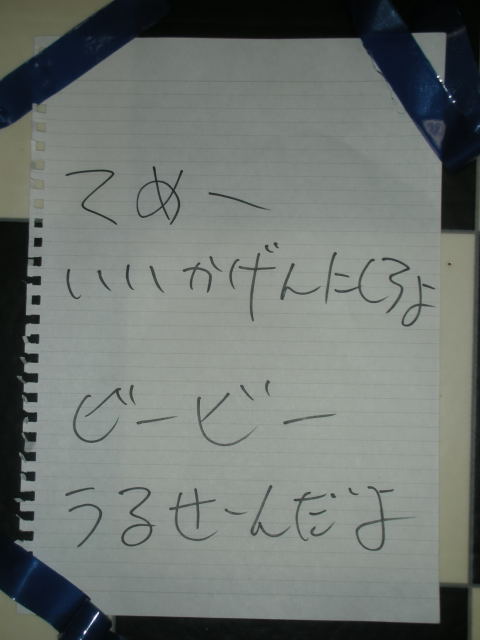 てめー
いいかげんにしろよ
ビービー
うるせーんだよ